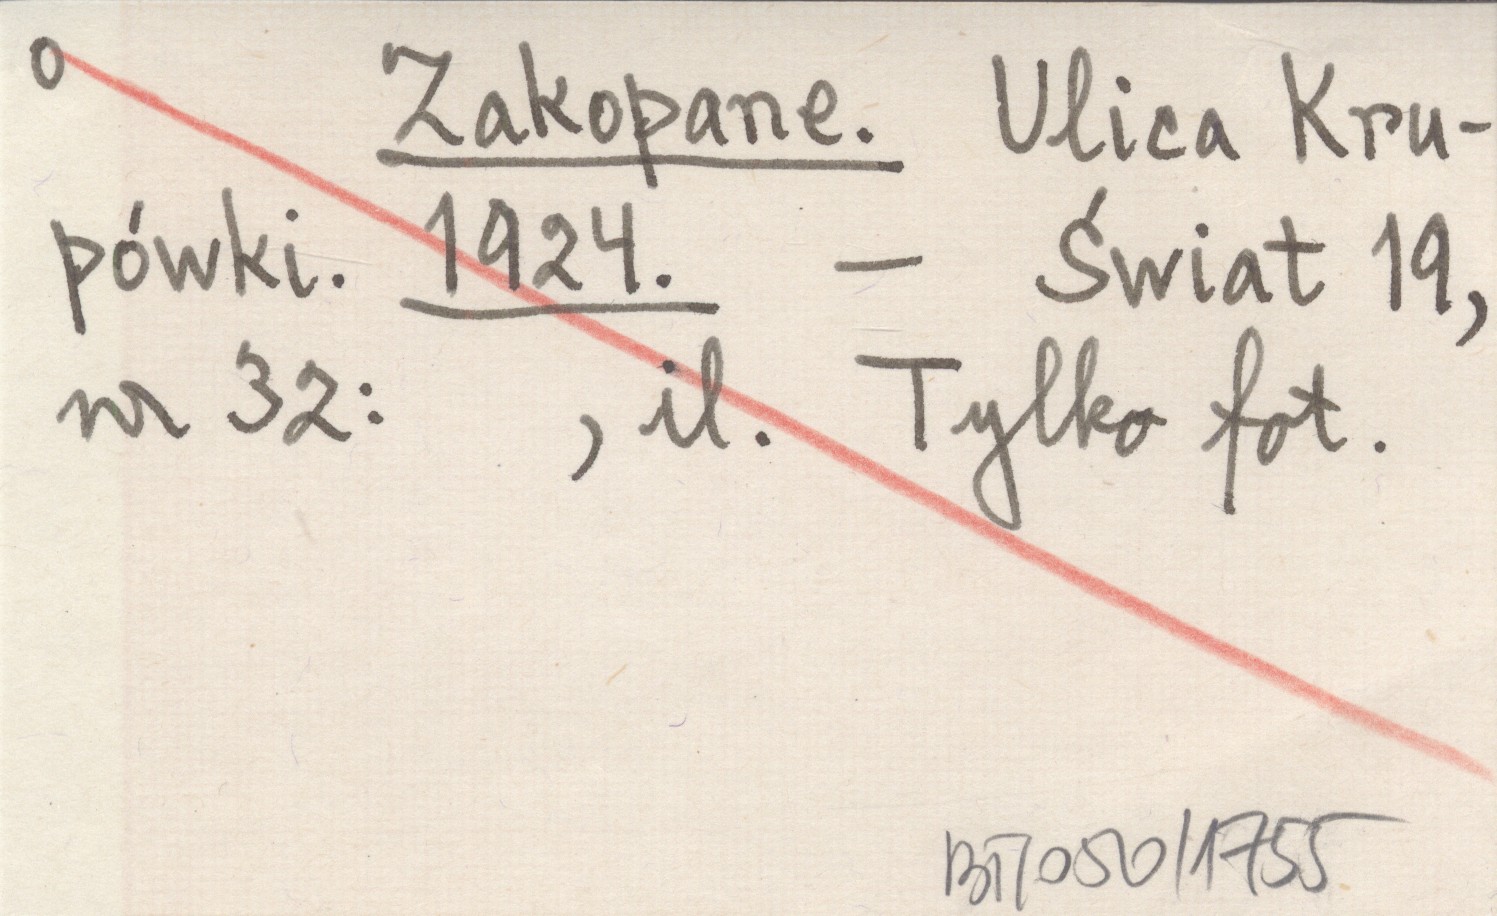 o Zakopane. Ulica Kru-
pówki. 1924. — Świat 19,
nr 32: , il. Tylko fot.
BT/050/1755